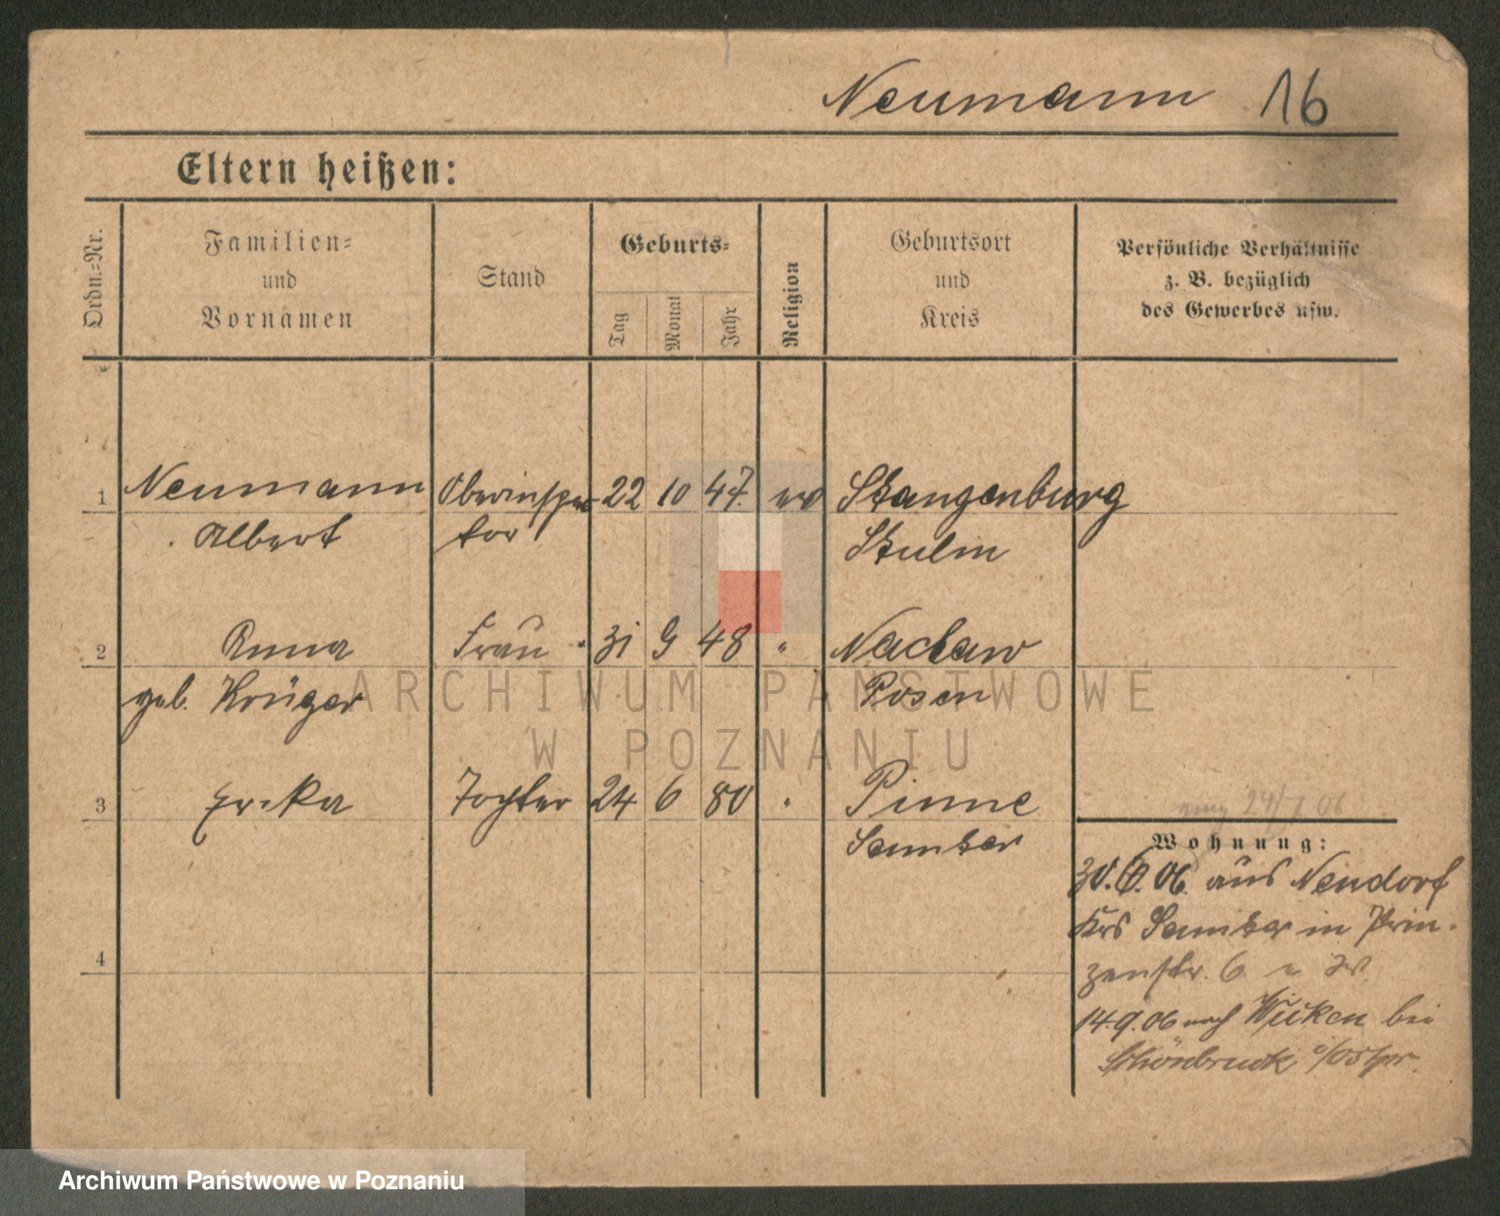 Neumann 16
Eltern heißen:
Ordn.=Nr.
Familien=
und
Vornamen
Stand
Geburts=
Tag
Monat
Jahr
Religion
Geburtsort
und
Kreis
Persönliche Verhältnisse
z. B. bezüglich
des Gewerbes usw.
1 Neumann Oberinspek 22 10 47. ev Stangenburg
Albert tor Stulm
2 Anna Frau 31 9 48 " Nacław
geb. Krüger Posen
3 Erika Tochter 24 6 80 " Pinne
Samter
24/7 06
Wohnung:
30.6.06. aus Neudorf
Krs Samter in Prin-
zenstr. 6
4
14.9.06 nach Wicken bei
Schönbruck i/Ostpr.
ARCHIWUM PAŃSTWOWE
W POZNANIU
Archiwum Państwowe w Poznaniu